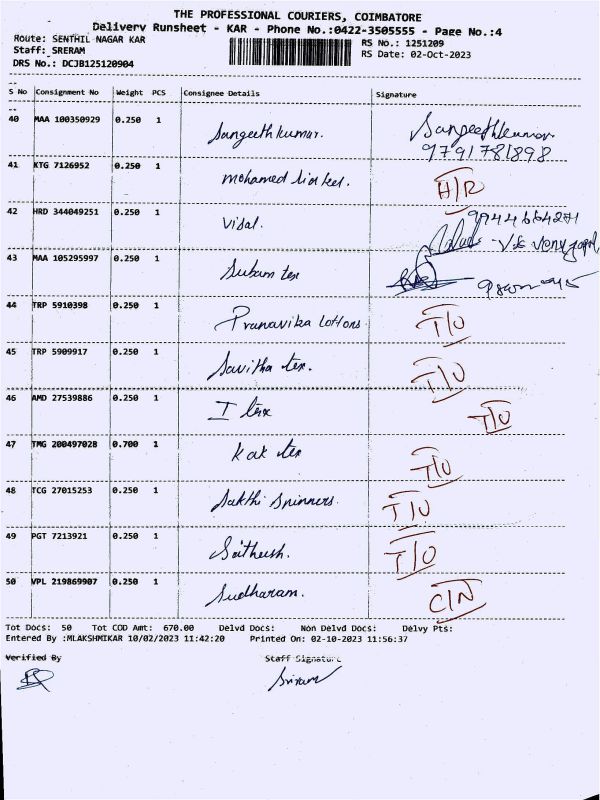 THE PROFESSIONAL COURIERS, COIMBATORE
Delivery Runsheet - KAR - Phone No.:0422-3505555 - Page No.:4
Route: SENTHIL NAGAR KAR
RS No.: 1251209
Staff: SRERAM
RS Date: 02-Oct-2023
DRS No.: DCJB125120904
S No Consignment No Weight PCS Consignee Details Signature
40 MAA 100350929 0.250 1 Sangeethkumar. Sangeethkumar
9791781898
41 KTG 7126952 0.250 1 Mohamed H/R
42 HRD 344049251 0.250 1 Visal.
43 MAA 105295997 0.250 1 Subam tex
44 TRP 5910398 0.250 1 Pranavika Cottons. T/O
45 TRP 5909917 0.250 1 Savitha tex. T/O
46 AMD 27539886 0.250 1 I tex T/O
47 TMG 200497028 0.700 1 Kak tex T/O
48 TCG 27015253 0.250 1 Sakthi Spinners. T/O
49 PGT 7213921 0.250 1 Sathish. T/O
50 VPL 219869907 0.250 1 Sudharam. C/N
Tot Docs: 50 Tot COD Amt: 670.00 Delvd Docs: Non Delvd Docs: Delvy Pts:
Entered By :MLAKSHMIKAR 10/02/2023 11:42:20 Printed On: 02-10-2023 11:56:37
Verified By Staff Signature
Sriram